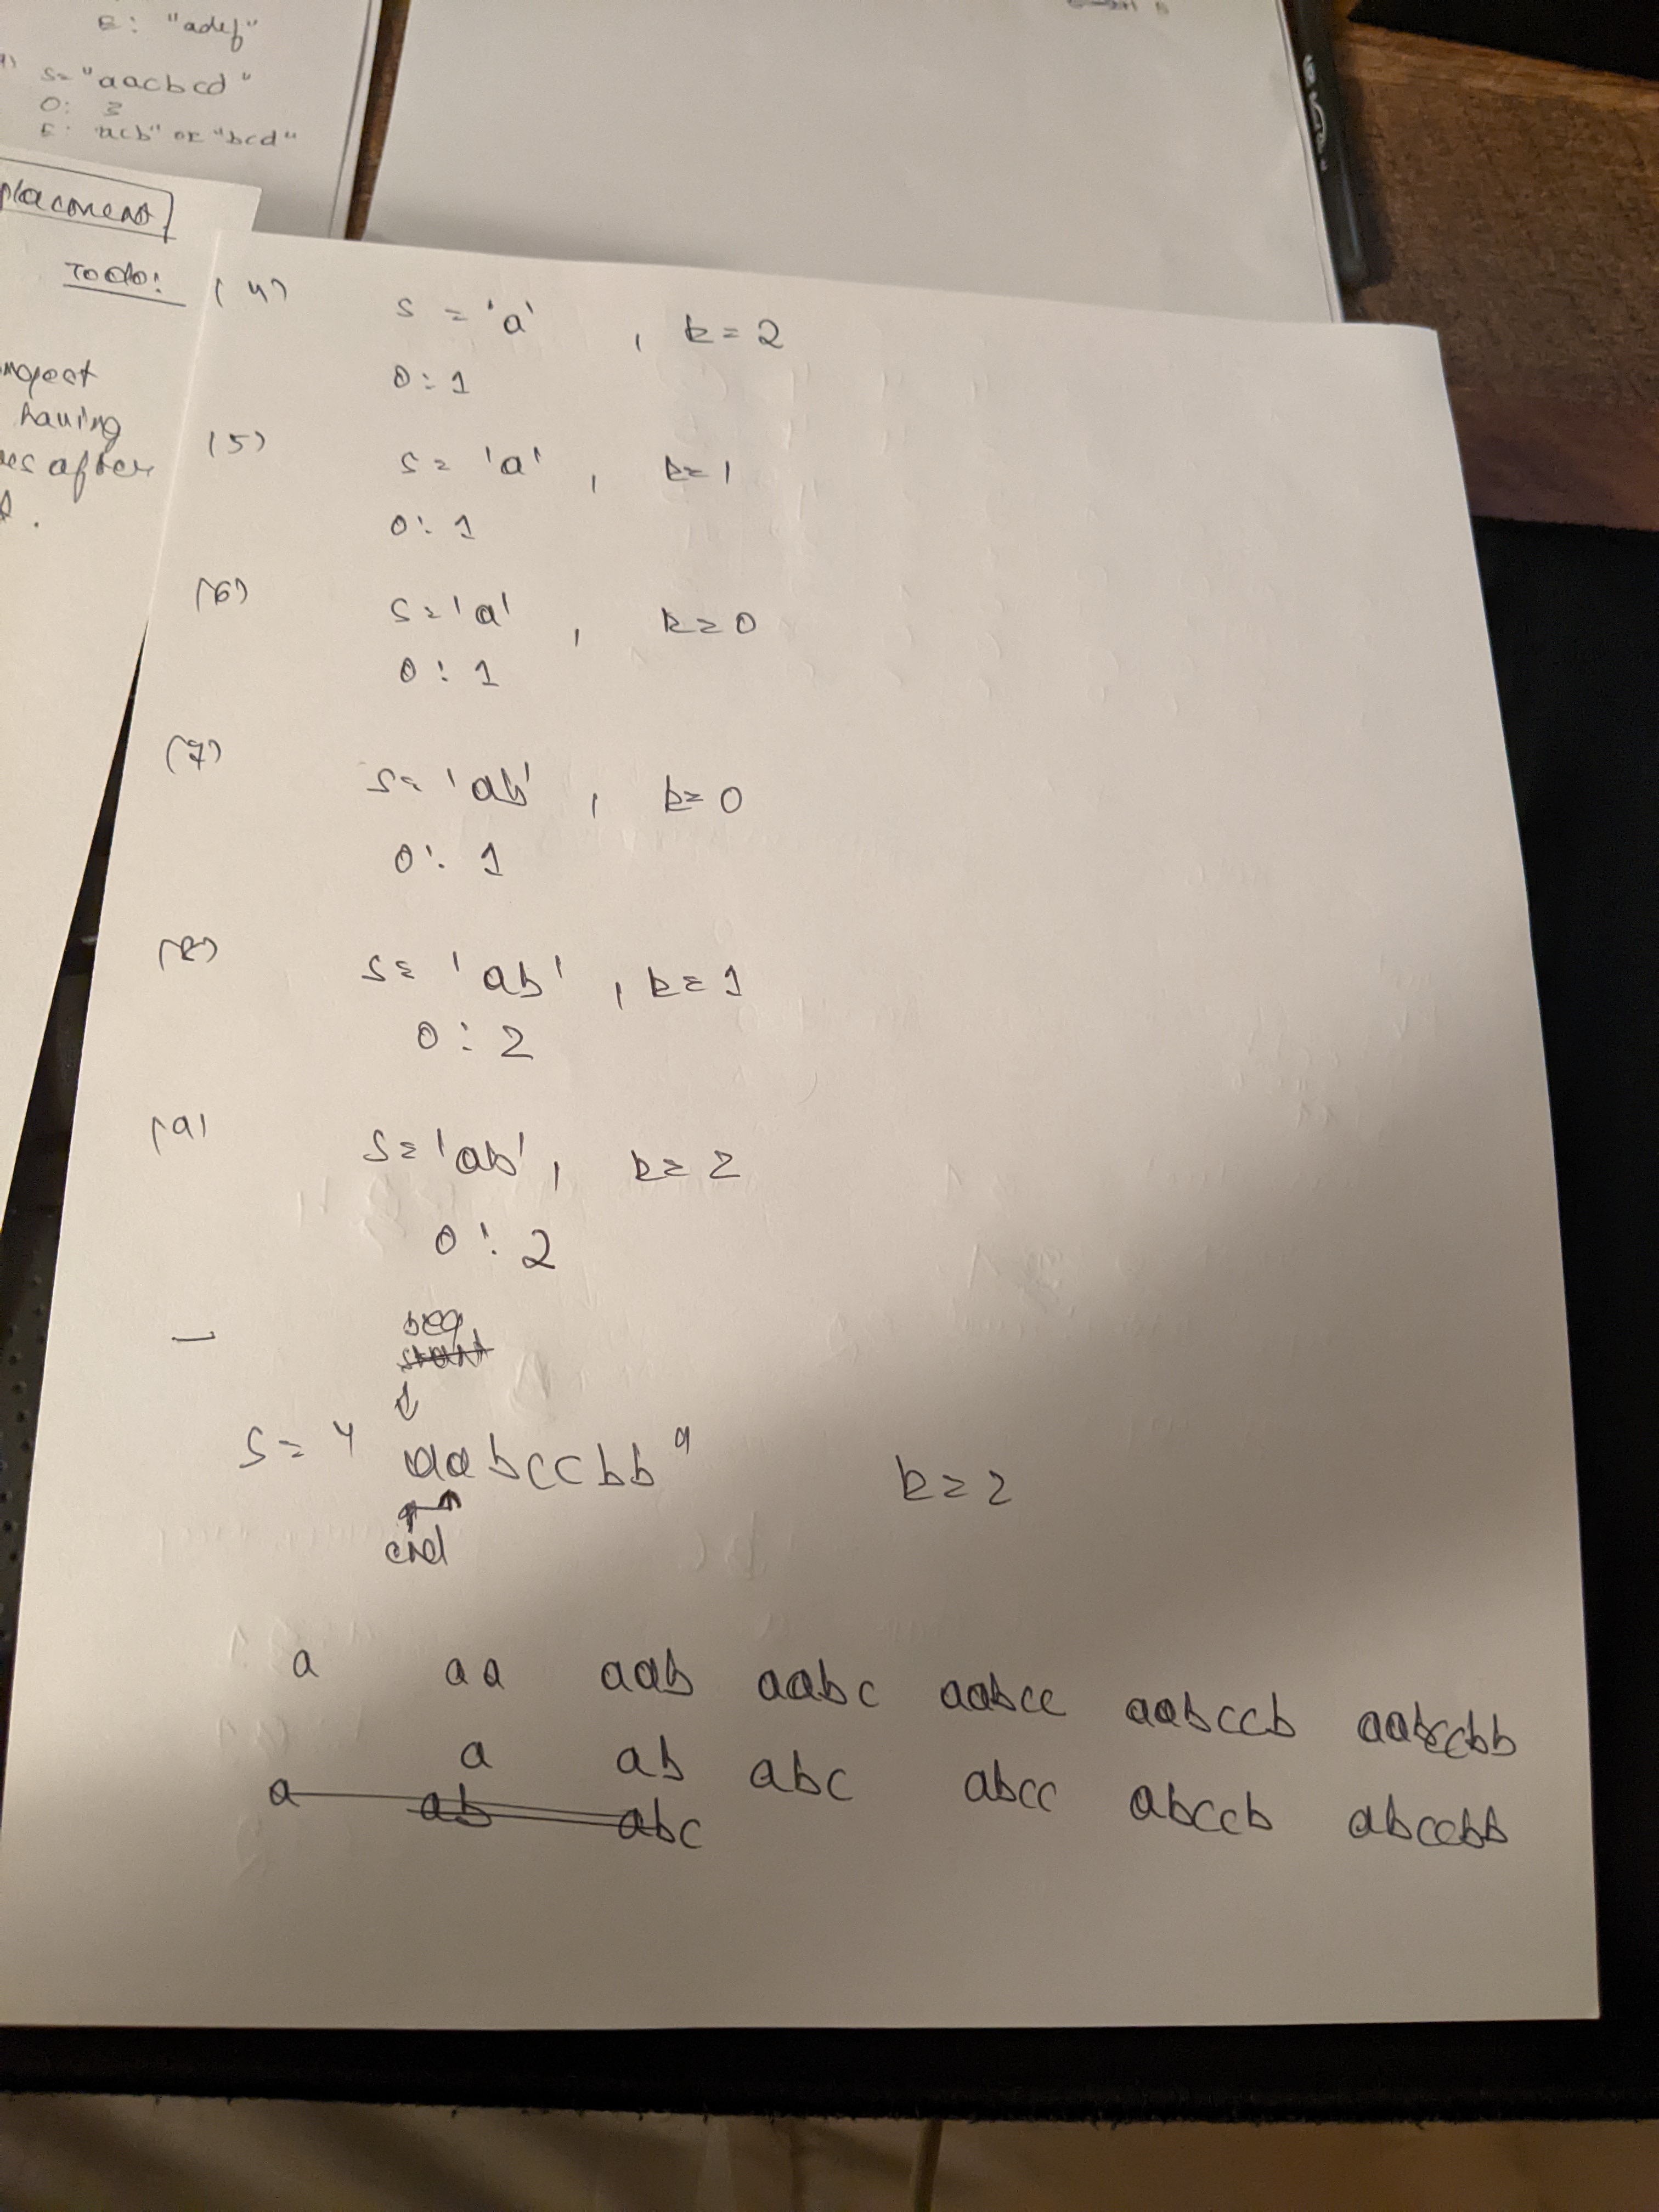 E: "adef"
s= "aacbcd"
O: 3
E: "acb" or "bcd"
placement
Todo:
having
after
(4) s = 'a' , k = 2
O: 1
(5) s = 'a' , k = 1
O: 1
(6) s = 'a' , k = 0
O: 1
(7) s = 'ab' , k = 0
O: 1
(8) s = 'ab' , k = 1
O: 2
(9) s = 'ab' , k = 2
O: 2
beg
start
s = "aabccbb" k = 2
end
a aa aab aabc aabcc aabccb aabccbb
a ab abc abcc abccb abccbb
a ab abc